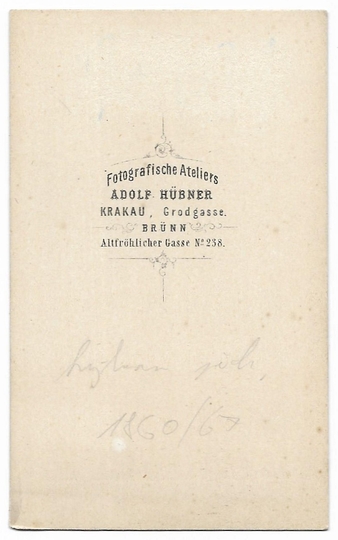 Fotografische Ateliers
ADOLF HÜBNER
KRAKAU, Grodgasse.
BRÜNN
Altfröhlicher Gasse Nº 238.